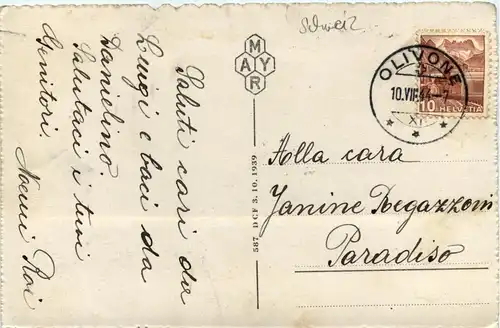 Schweiz
Saluti cari da
Luigi e baci da
Danielino.
Salutaci i tuoi
Genitori.
Noemi
MAYR
587 DCF 3.10.1939
OLIVONE
10.VII.44-7
XI
10 HELVETIA
Alla cara
Janine Regazzoni
Paradiso